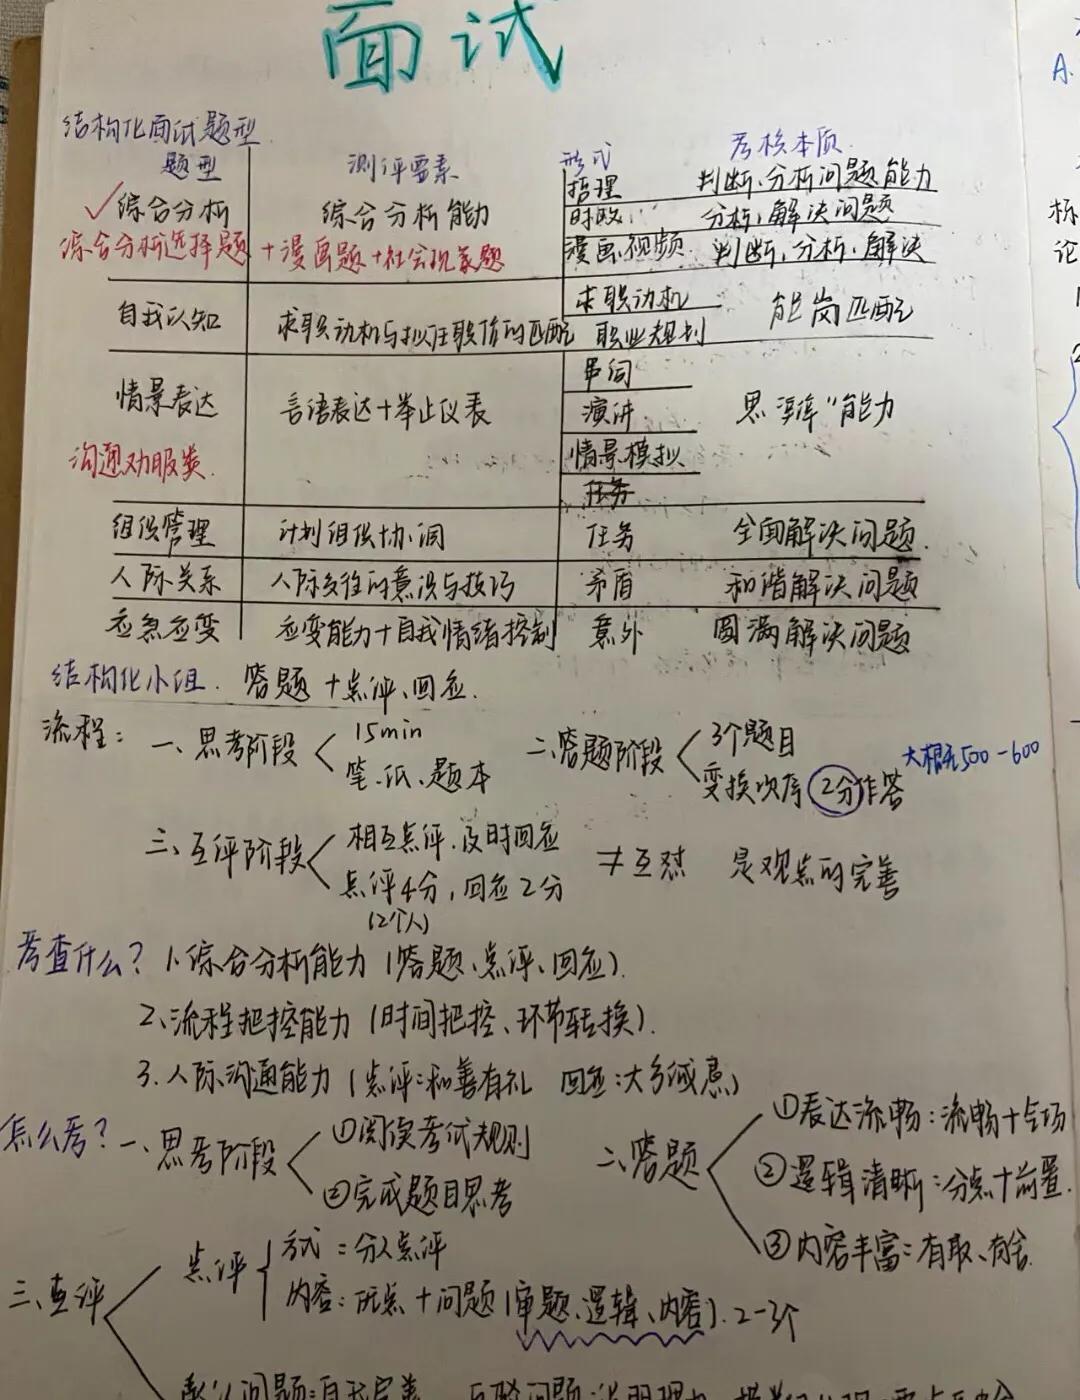 面试
结构化面试题型
题型 测评要素 形式 考核本质
✓综合分析 综合分析能力 哲理 判断、分析问题能力
时政 分析、解决问题
综合分析选择题+漫画题+社会现象题 漫画、视频 判断、分析、解决
自我认知 求职动机与拟任职位的匹配 求职动机 能岗匹配
职业规划
情景表达 言语表达+举止仪表 串词 思维"能力
演讲
沟通劝服类. 情景模拟
任务
组织管理 计划组织协调 任务 全面解决问题.
人际关系 人际交往的意识与技巧 矛盾 和谐解决问题
应急应变 应变能力+自我情绪控制 意外 圆满解决问题
结构化小组. 答题+点评、回应.
流程: 一、思考阶段 15min 二、答题阶段 3个题目
笔、纸、题本 变换次序 2分作答 大概500-600
三、互评阶段 相互点评.及时回应 ≠互怼 是观点的完善
点评4分,回应2分
(2个人)
考查什么? 1.综合分析能力(答题、点评、回应).
2.流程把控能力(时间把控、环节转换).
3.人际沟通能力(点评:和善有礼 回应:大方诚恳)
怎么考? 一、思考阶段 ①阅读考试规则 二、答题 ①表达流畅:流畅+气场
②完成题目思考 ②逻辑清晰:分点+前置.
③内容丰富:有取、有舍.
三、互评 点评 方式:分人点评
内容:优点+问题(审题、逻辑、内容).2-3个